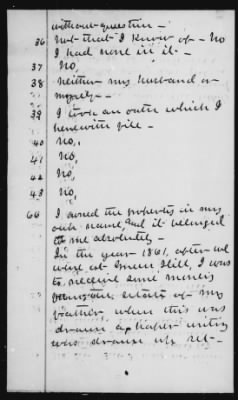 without question —
36 Not that I know of — No
I had none in it —
37 No,
38 Neither my husband or
myself —
39 I took an oath which I
herewith file —
40 No,
41 No,
42 No,
43 No,
66 I owned the property in my
own name, and it belonged
to me absolutely —
In the year 1861, after we
were at Green Hill, I was
to receive some moneys
from the estate of my
father, when this was
drawn a paper writing
was drawn up, set-